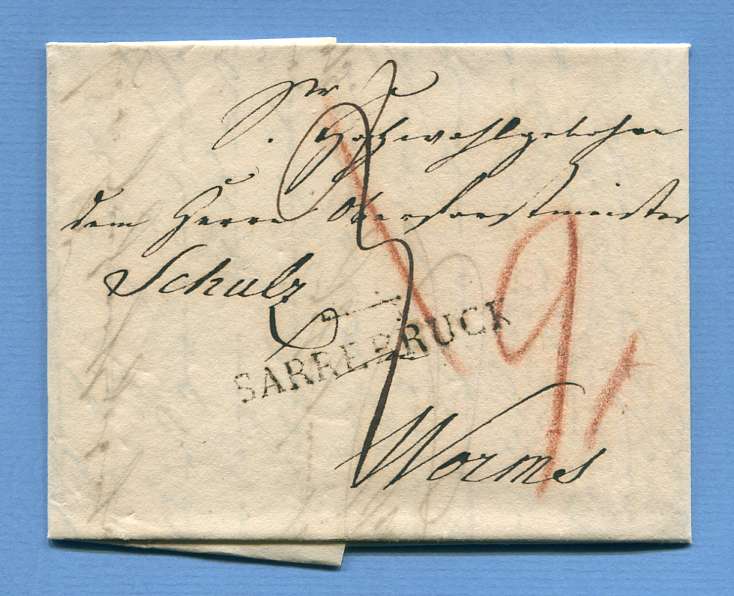 Hochwohlgebohrn
dem Herrn Oberforstmeister
Schulz
SARREBRUCK
Worms
19